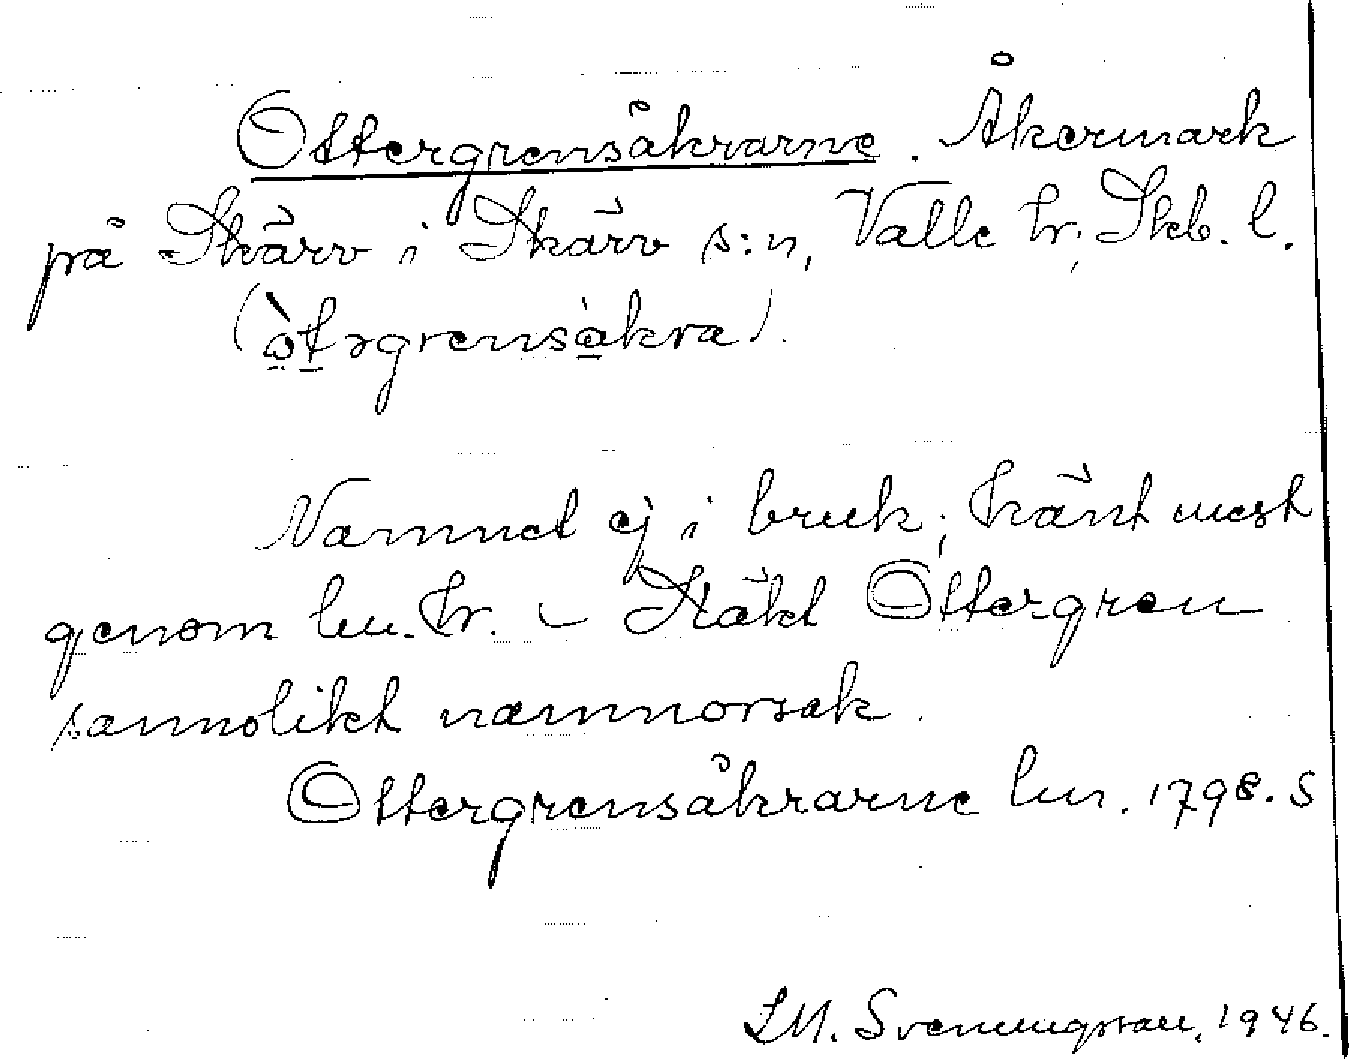 Ottergrensåkrarne. Åkermark
på Skärv i Skärv s:n, Valle hr, Skb. l.
(òtərgrensåkra).
Namnet ej i bruk; känt mest
genom lm. kr. – Släkt Ottergren
sannolikt namnorsak.
Ottergrensåkrarne lm. 1798. S
I.M. Svenungsson, 1946.